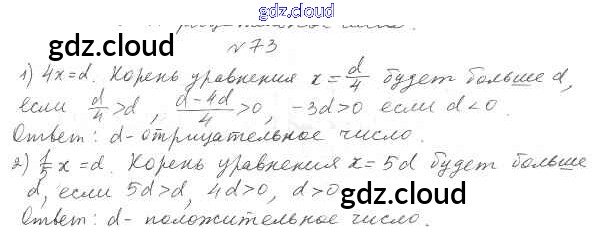 gdz.cloud
gdz.cloud gdz.cloud
№73
1) 4x=d. Корень уравнения x = d/4 будет больше d,
если d/4 > d, (d-4d)/4 > 0, -3d>0 если d<0.
Ответ: d-отрицательное число.
2) 1/5 x = d. Корень уравнения x = 5d будет больше
d, если 5d>d, 4d>0, d>0
gdz.cloud
Ответ: d- положительное число.